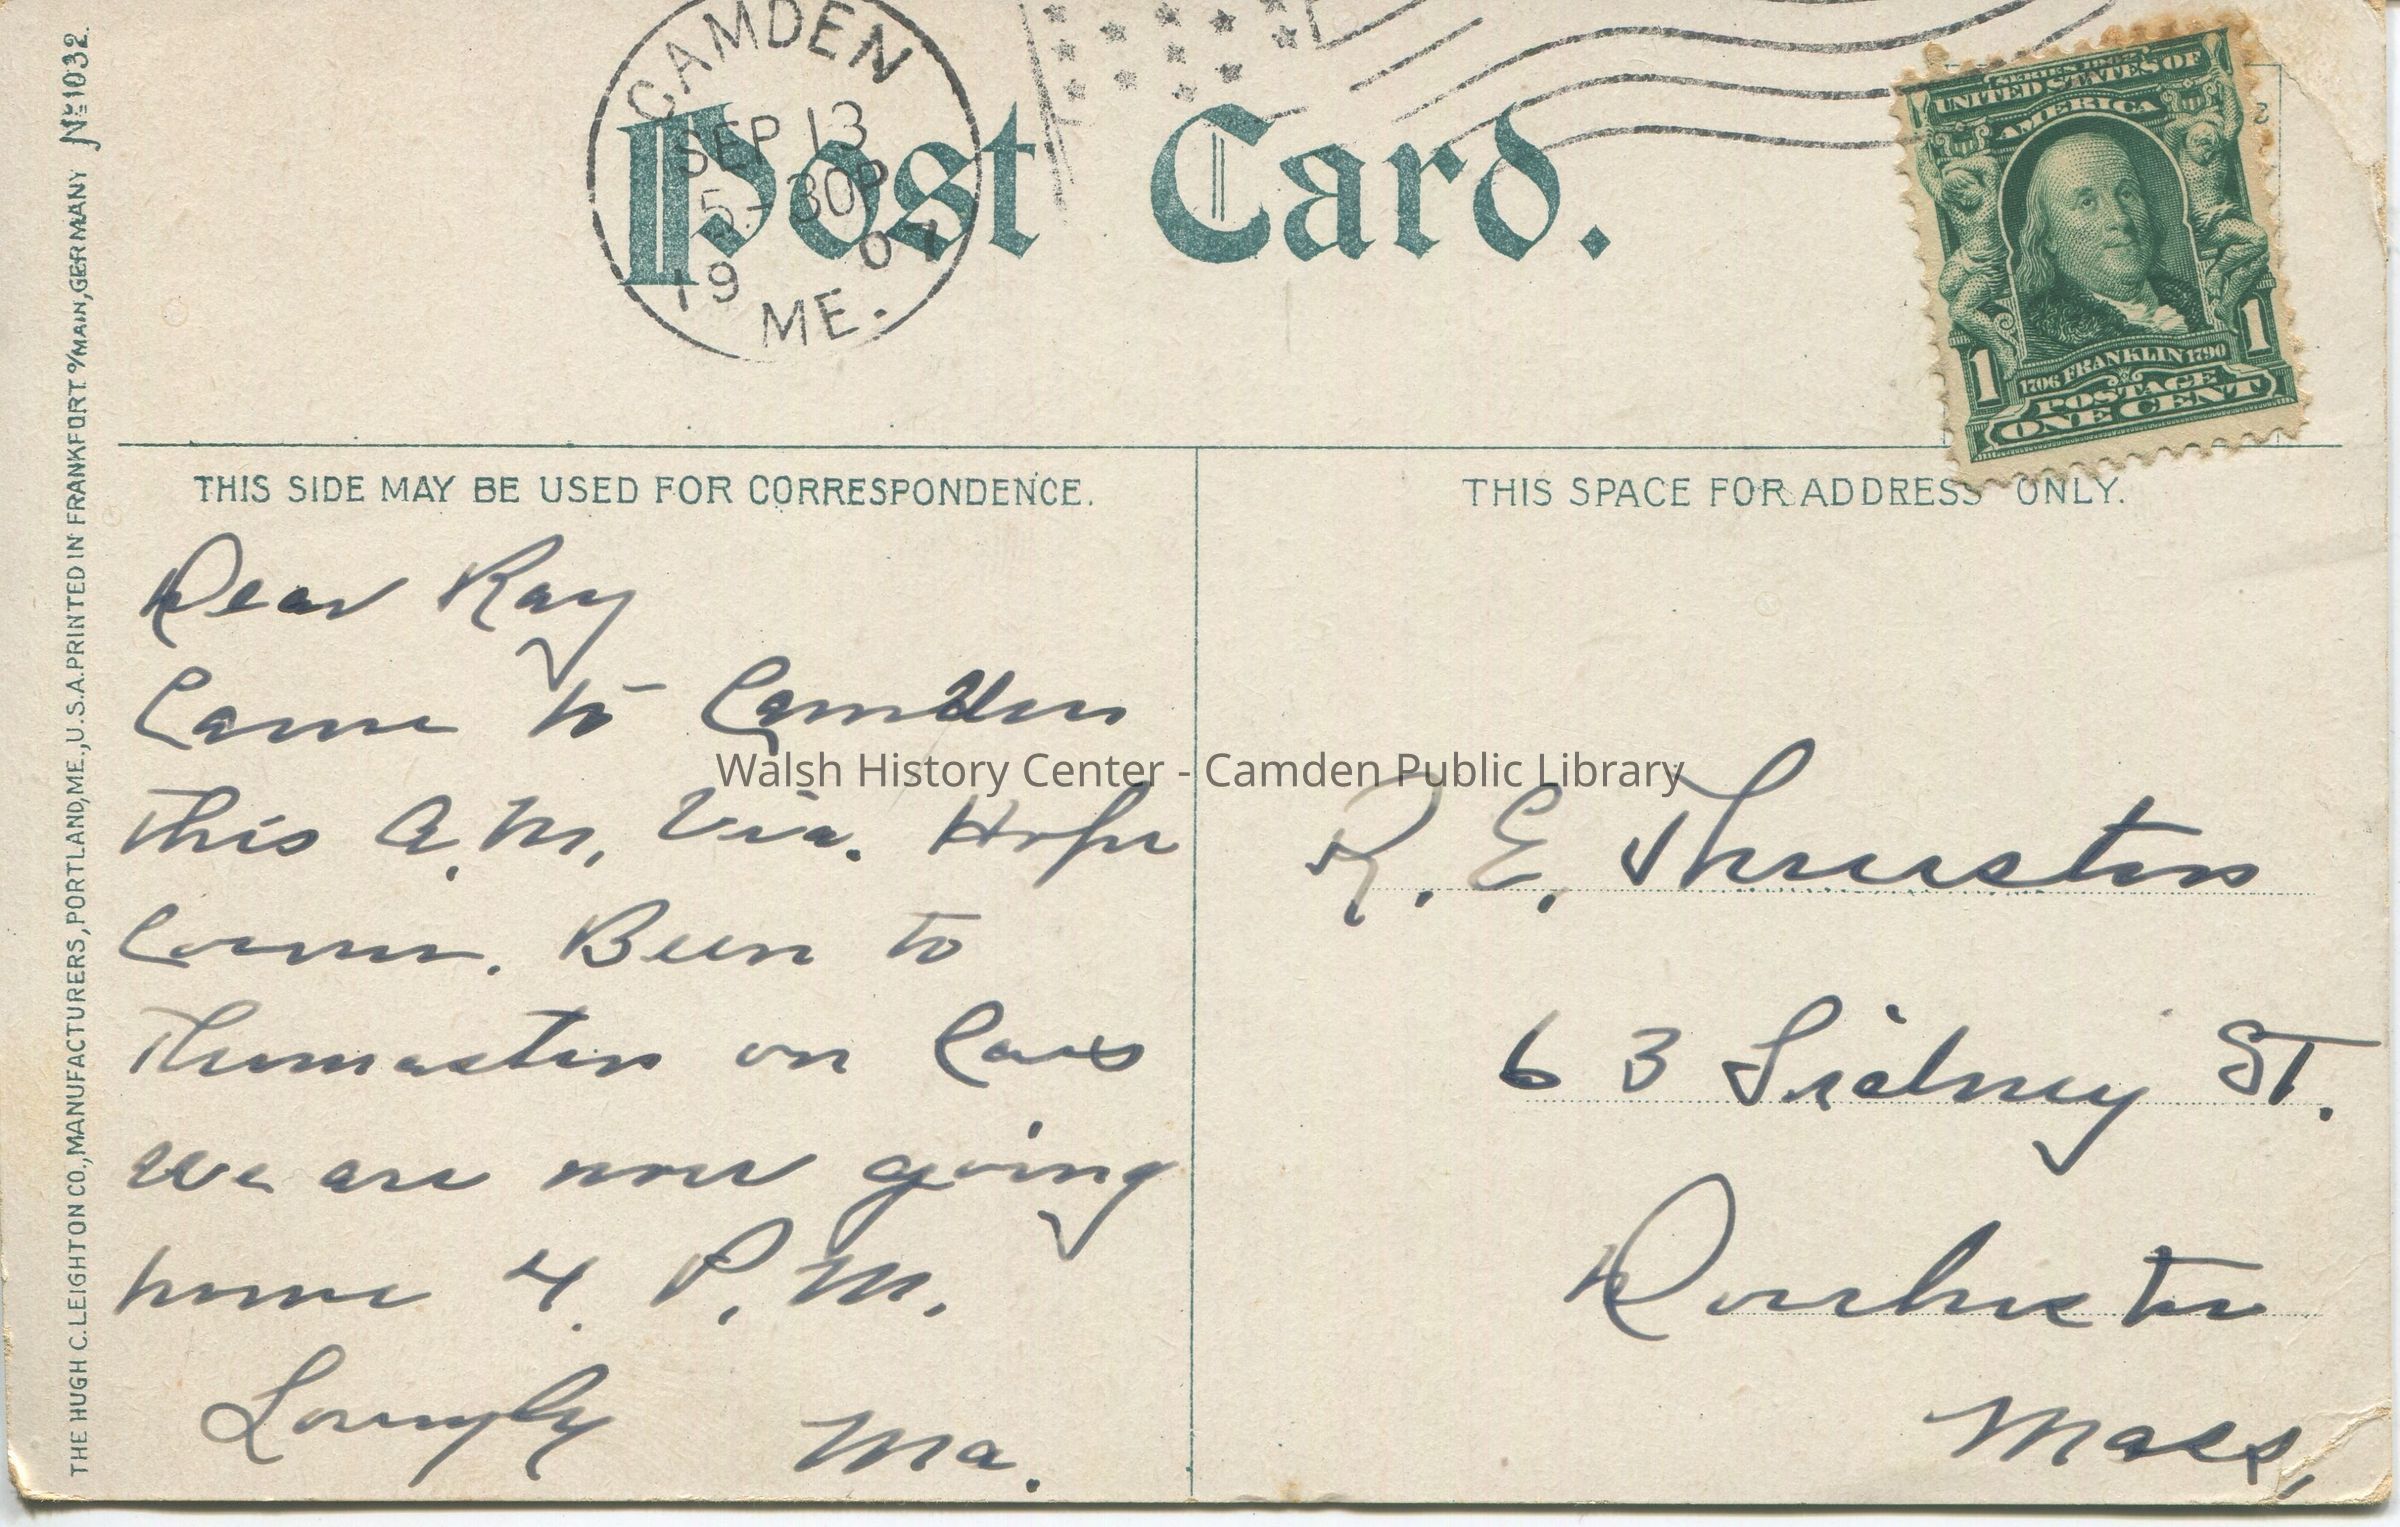 CAMDEN
SEP 13
5-30P
1907
ME.
Post Card.
SERIES 1902
UNITED STATES OF
AMERICA
1706 FRANKLIN 1790
1 1
POSTAGE
ONE CENT
THE HUGH C. LEIGHTON CO., MANUFACTURERS, PORTLAND, ME., U.S.A. PRINTED IN FRANKFORT o/MAIN, GERMANY No 1032.
THIS SIDE MAY BE USED FOR CORRESPONDENCE.
Dear Ray
Came to Camden
this A.M. Via. Hope
Corner. Been to
Thomaston on Cars
We are now going
home 4. P.M.
Lovingly Ma.
THIS SPACE FOR ADDRESS ONLY.
R. E. Thurston
63 Sidney St.
Dorchester
Mass,
Walsh History Center - Camden Public Library